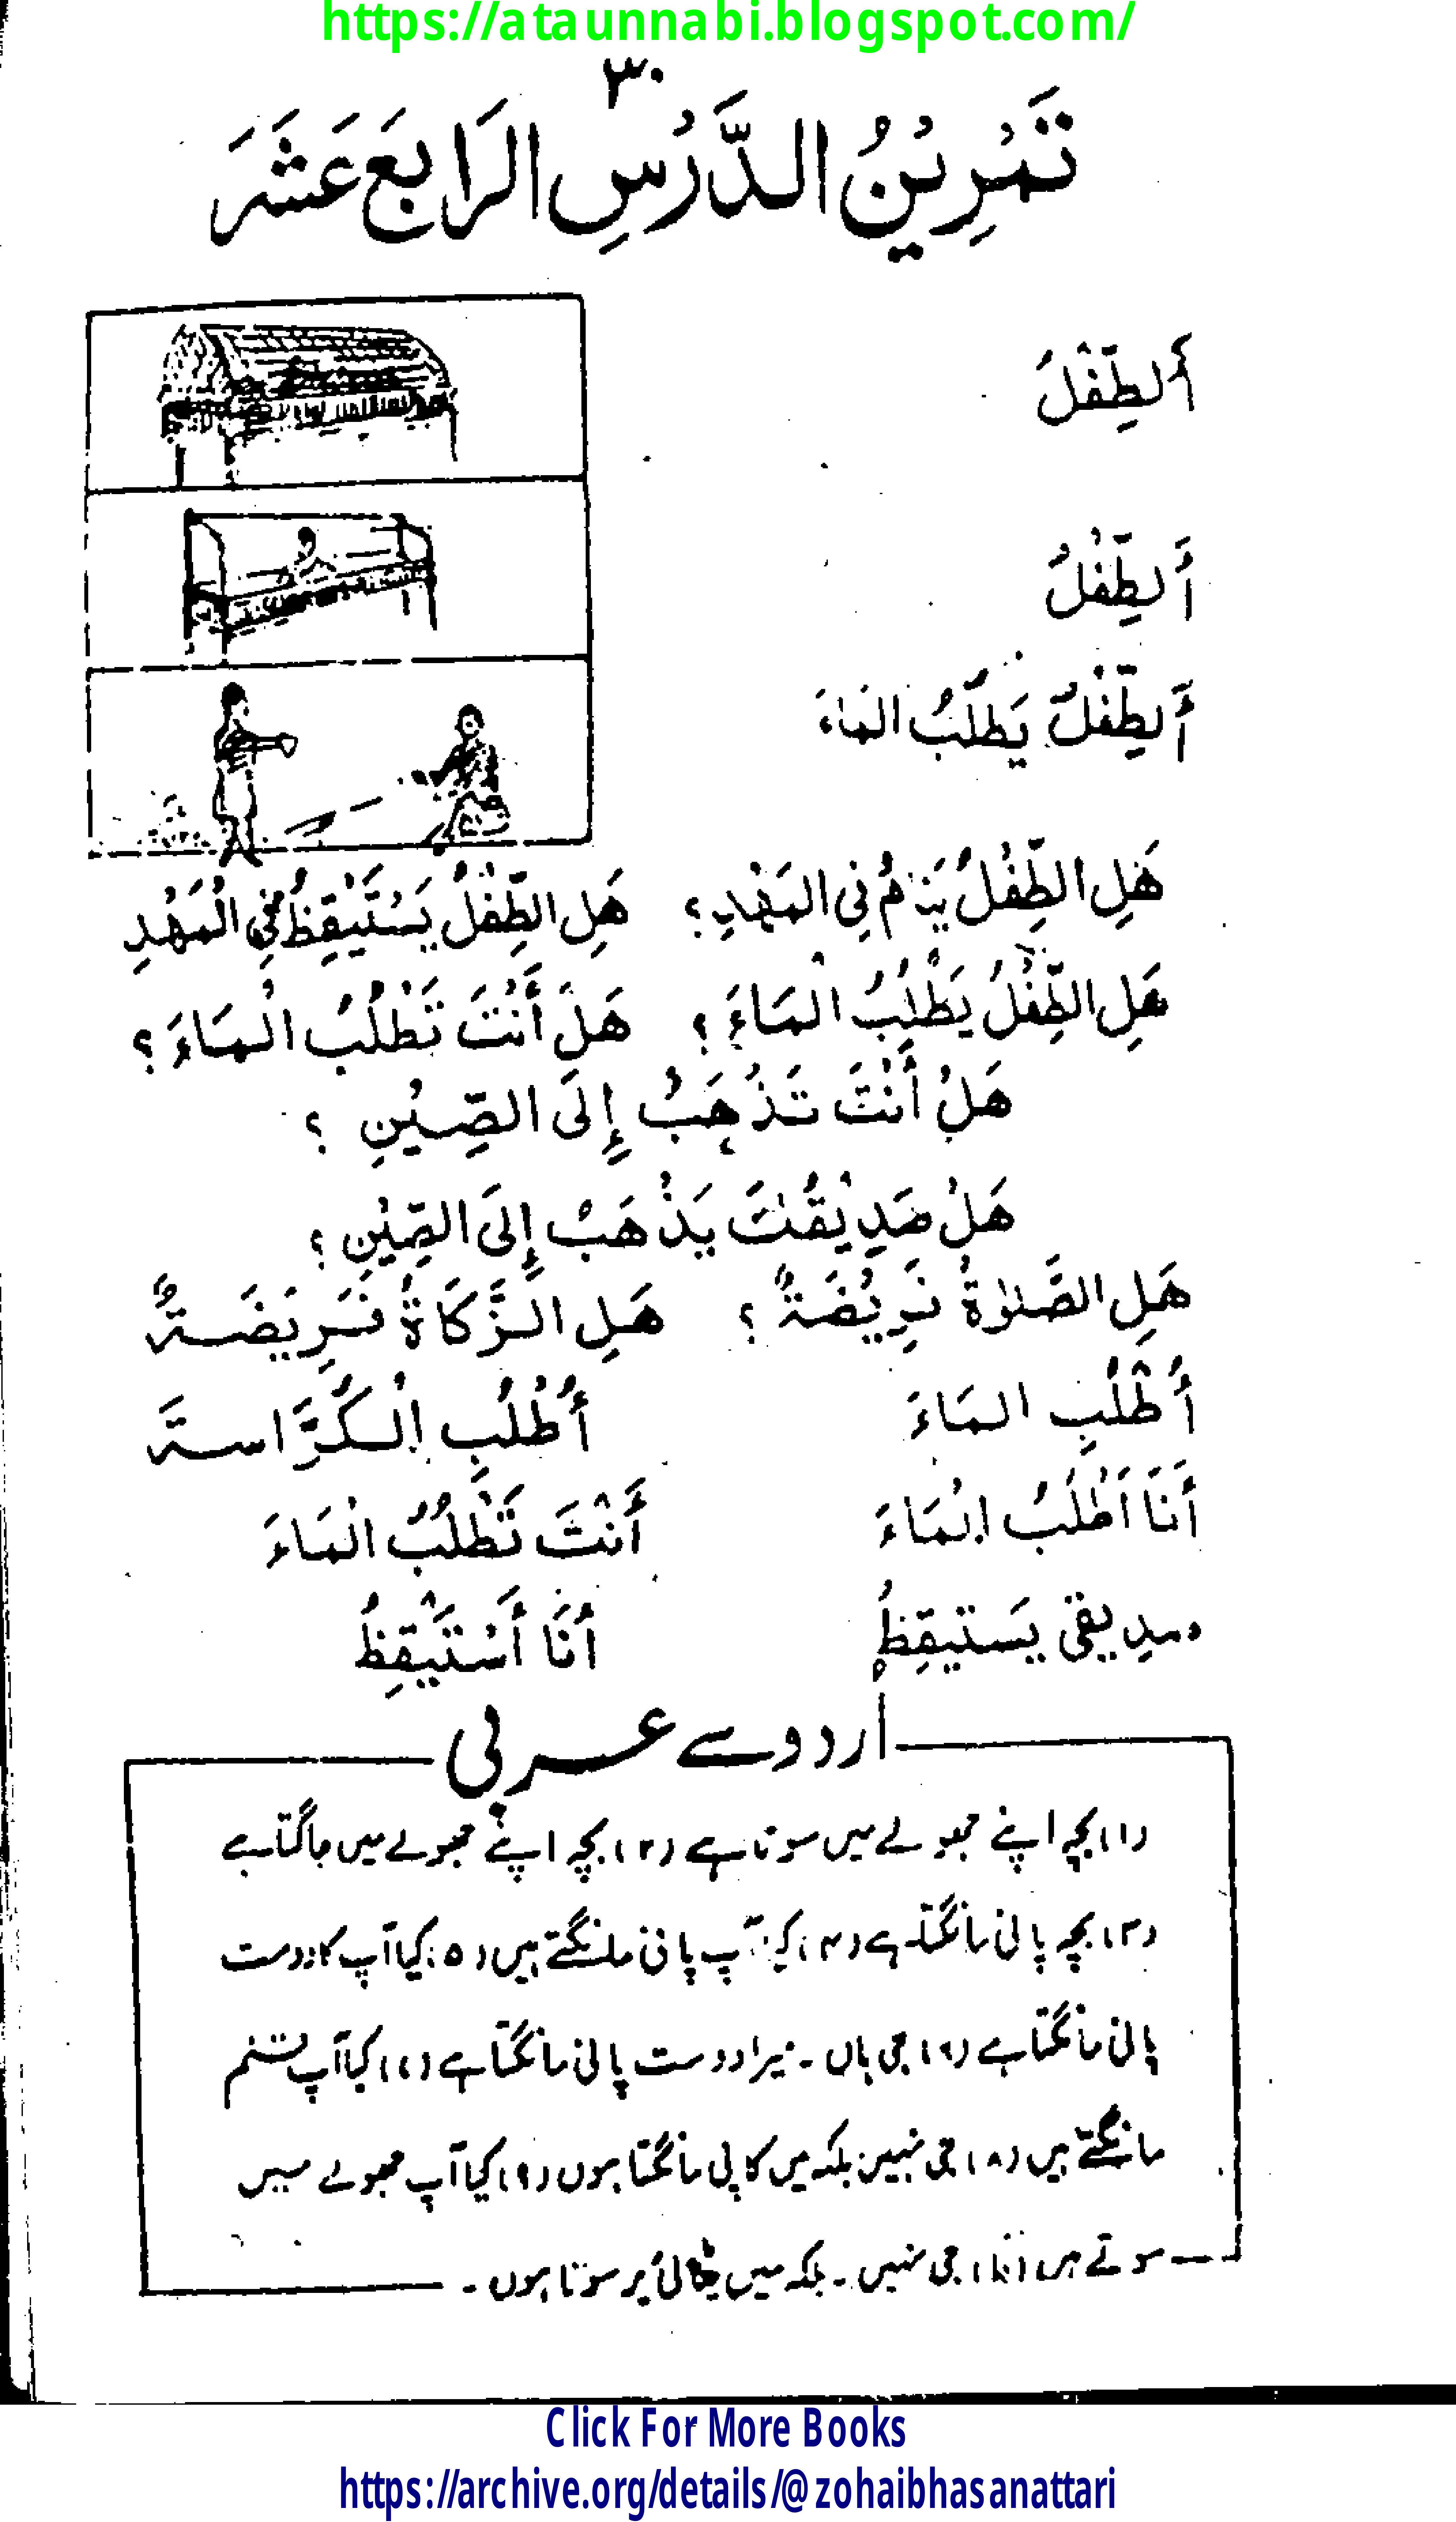 https://ataunnabi.blogspot.com/
۳۰
تَمْرِيْنُ الدَّرْسِ الرَابِعَ عَشَرَ
أَلطِّفْلُ
أَلطِّفْلُ
أَلطِّفْلُ يَطْلُبُ المَاءَ
هَلِ الطِّفْلُ يَنَامُ فِي المَهْدِ؟ هَلِ الطِّفْلُ يَسْتَيْقِظُ فِي الْمَهْدِ
هَلِ الطِّفْلُ يَطْلُبُ الْمَاءَ؟ هَلْ أَنْتَ تَطْلُبُ الْمَاءَ؟
هَلْ أَنْتَ تَذْهَبُ إِلَى الصِّيْنِ ؟
هَلْ صَدِيْقُكَ يَذْهَبُ إِلَى الصِّيْنِ؟
هَلِ الصَّلٰوةُ فَرِيْضَةٌ؟ هَلِ الزَّكَاةُ فَرِيْضَةٌ
أُطْلُبِ المَاءَ أُطْلُبِ الْكُرَّاسةَ
أَنَا أَطْلُبُ الْمَاءَ أَنْتَ تَطْلُبُ الْمَاءَ
صدِيقي يَستيقِظُ أَنَا أَسْتَيْقِظُ
اُردو سے عربی
(۱) بچہ اپنے جھولے میں سوتا ہے (۲) بچہ اپنے جھولے میں جاگتا ہے
(۳) بچہ پانی مانگتا ہے (۴) کیا آپ پانی مانگتے ہیں (۵) کیا آپ کا دوست
پانی مانگتا ہے (۶) جی ہاں ۔ میرا دوست پانی مانگتا ہے (۷) کیا آپ قلم
مانگتے ہیں (۸) جی نہیں بلکہ میں کاپی مانگتا ہوں (۹) کیا آپ جھولے میں
سوتے ہیں (۱۰) جی نہیں ۔ بلکہ میں پر سوتا ہوں ۔
Click For More Books
https://archive.org/details/@zohaibhasanattari